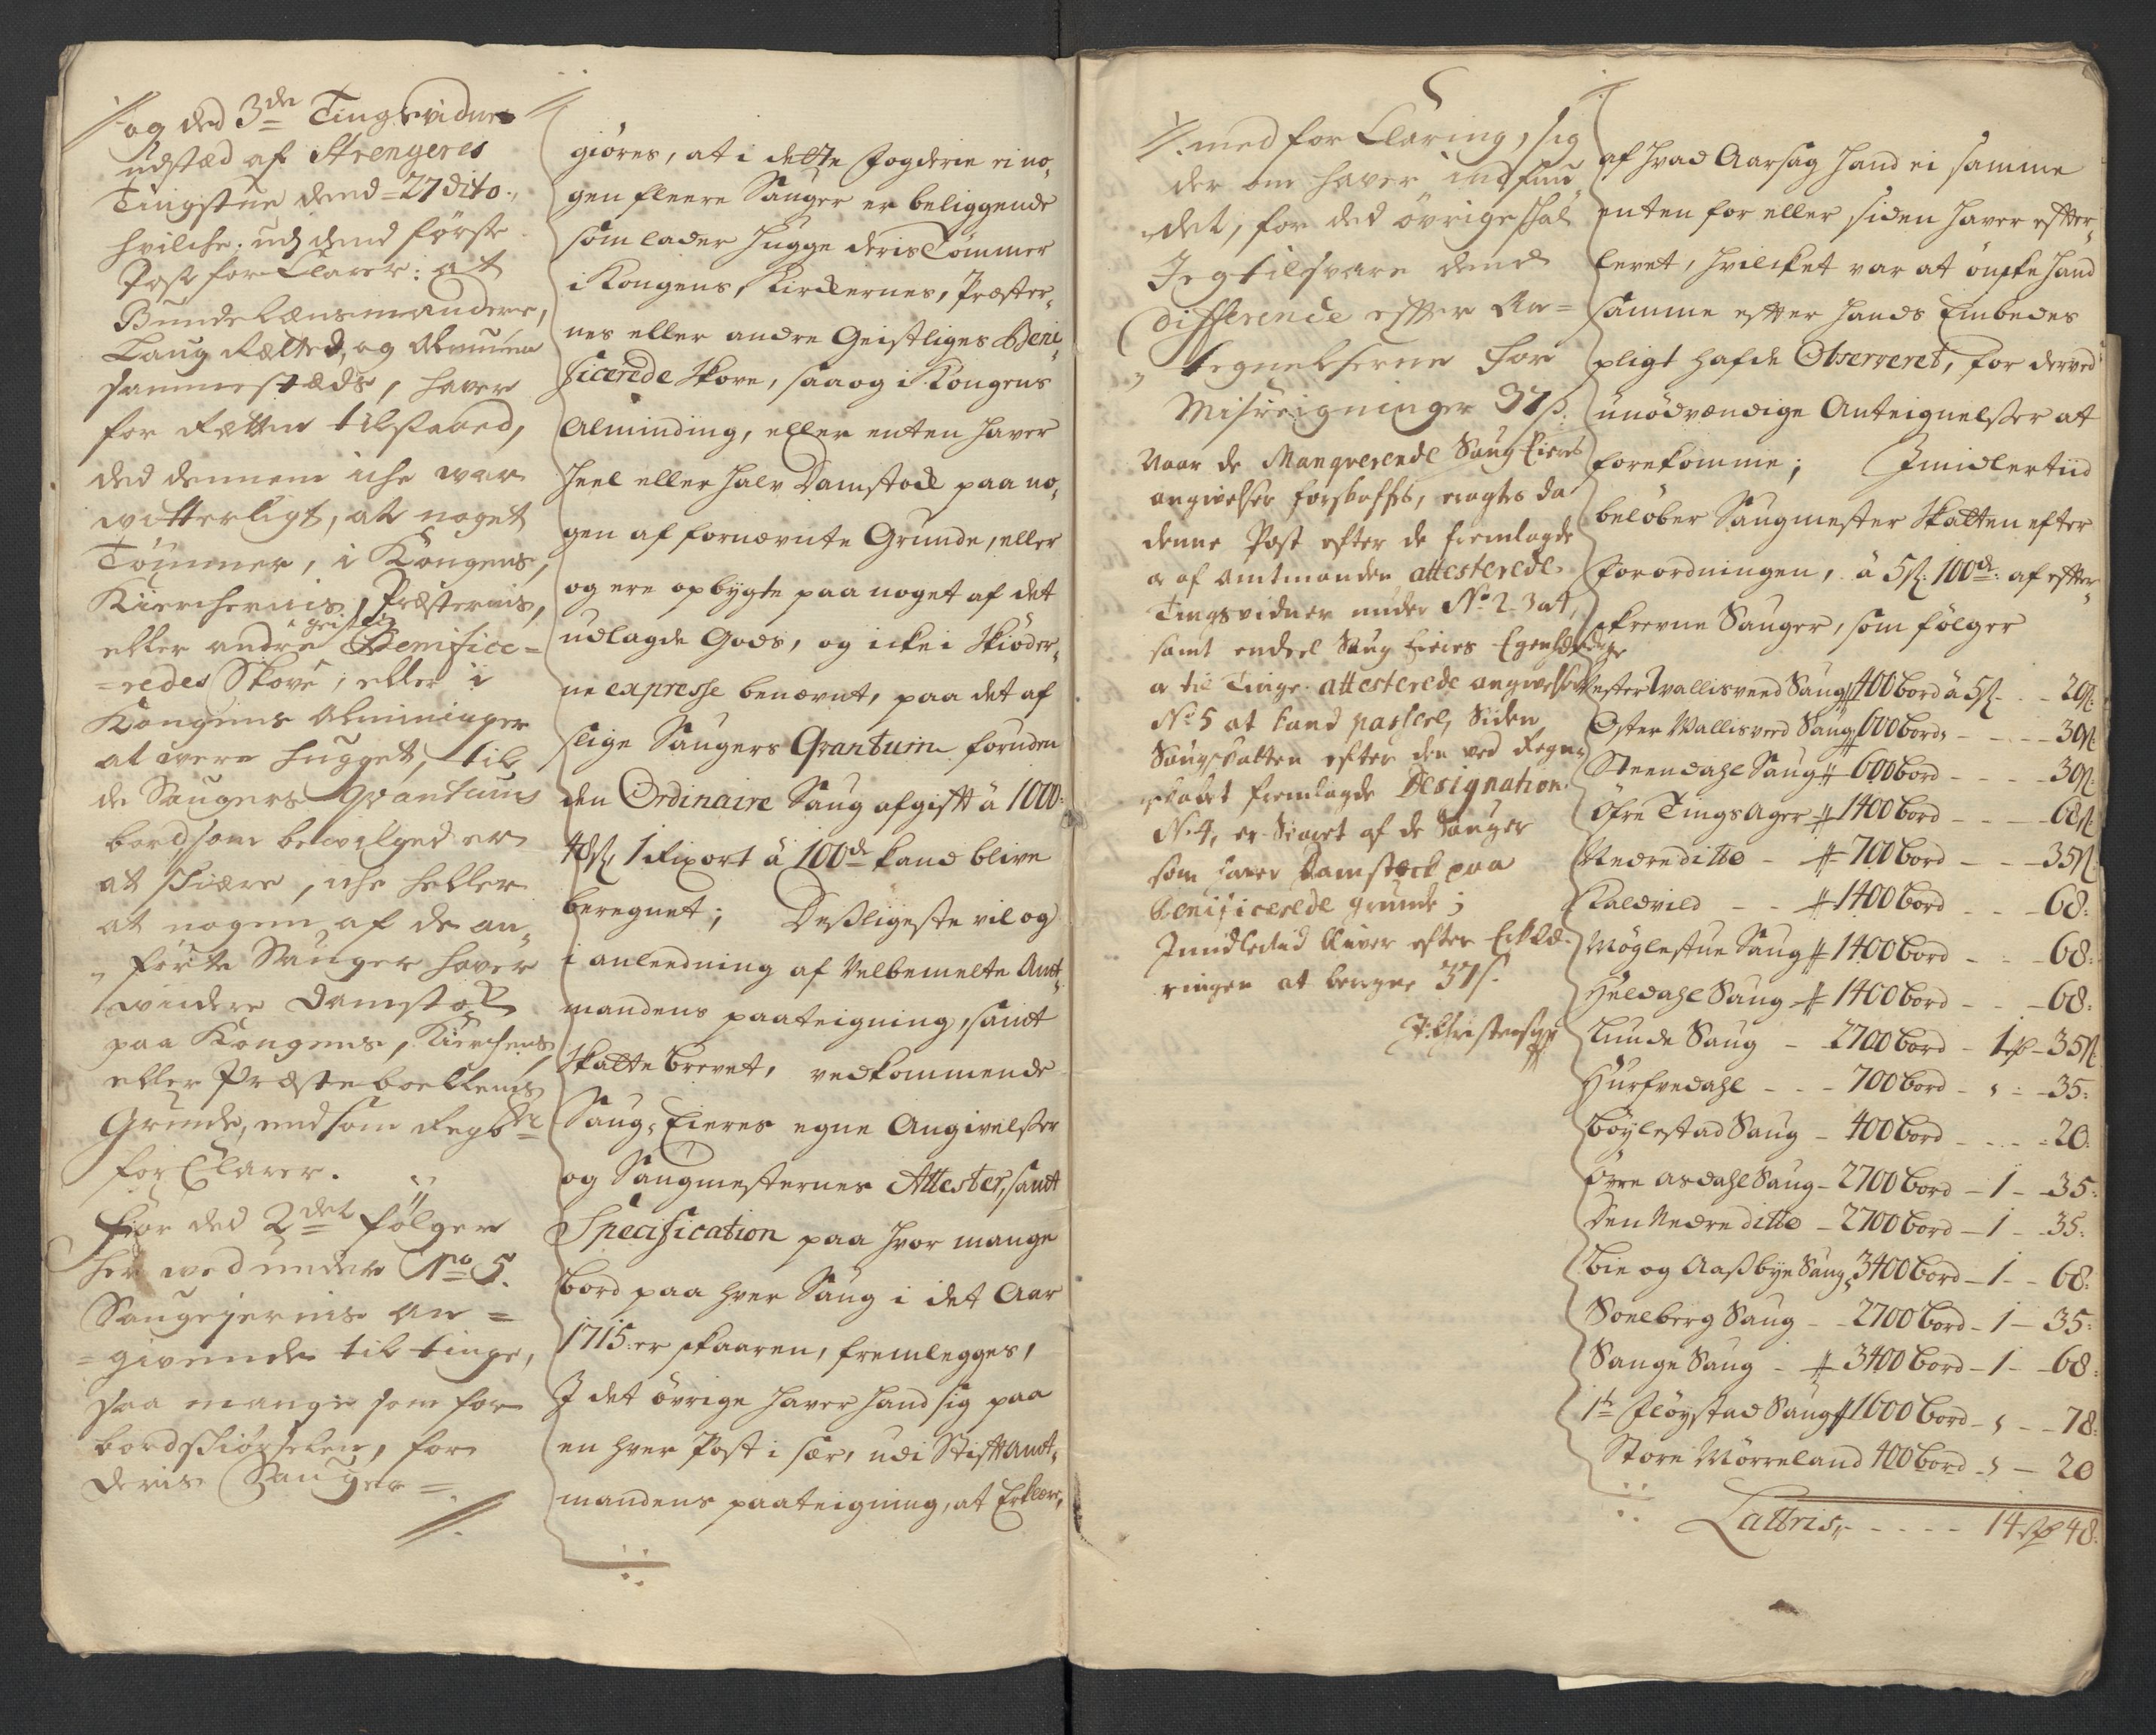 og ded 3de Tingsvidne
udstæd af Strengeres
Tingstue dend 27 dito.,
hvilche. udj dend første
Post for Clarer: at
Bunde Lænsmandene,
Laug Rætted, og Almuen
sammestæds, haver
for Rætten tilstaaed,
ded dennem iche war
witterligt, at noget
Tømmer, i Kongens,
Kierchernis, Præsternis,
eller andre geistl: Benifice=
=redes Skove, eller i
Kongens Almininger
at were hugget, til
de Saugers Qvantums
bord som bewilged er
at skiære, iche heller
at nogen af de an„
„førte Sauger haver
windere Damstok
paa Kongens, Kierchens,
eller Præsteboellenis
Grunde, end som Regbr:
for Clarer.
For ded 2det følger
her wed under No 5.
Saugejernis an=
=givende til tinge,
saa mange som for
bordskiørselen, for
deris Sauger =
giøres, at i dette Fogderie ei no„
gen fleere Sauger er beliggende
som lader hugge deris Tømmer
i Kongens, Kirckernes, Præster„
nes eller andre Geistliges Beni„
ficerede Skove, saa og i Kongens
Alminding, eller enten haver
heel eller halv Damstock paa no„
gen af fornævnte Grunde, eller
og ere opbygte paa noget af det
udlagde Gods, og icke i Skiøder„
ne expresse benævnt, paa det af
slige Saugers Qvantum foruden
den Ordinaire Saug afgifft â 1000:
48s, 1 Rixort â 100de kand blive
beregnet; Desligeste vil og
i anleedning af Velbemelte Amt„
mandens paateigning, samt
Skatte brevet, vedkommende
Saug„ Eieres egne Angivelser
og Saugmesternes Attester, samt
Specification paa hvor mange
bord paa hver Saug i det Aar
1715 er skaaren, fremlegges,
I det øvrige haver hand sig paa
en hver Post i sær, udi Stifftamt„
mandens paateigning, at Erklære,
5
med for Claring, sig
der om haver indfun„
„det, for ded øvrige skal
Jeg tilsvare dend
difference effter An=
„tegnelserne for
Misreigninger 37s.
Naar de Manqverende Saug Eieres
angivelser forskaffes, eragtes da
denne Post efter de fremlagde
a af Amtmanden attesterede
Tingsvidner under No 2-3 at,
samt endeel Saug Eieres Egenhændige
a til Tinge attesterede angivelser
No 5 at kand passere, siden
Saugskatten efter den ved Regn„
skabet fremlagde Designation
No 4, er Svaret af de Sauger
som haver Damstock paa
benificerede grunde;
Imidlertiid bliver efter Erklæ„
ringen at beregne 37s.
J. Christensen
af hvad Aarsag hand ei samme
enten for eller siden haver effter„
levet, hvilcket var at önske hand
samme effter hands Embedes
pligt hafde Observeret, for derved
unödvendige Anteignelser at
forekomme; Imidlertiid
belöber Saugmester Skatten efter
forordningen, â 5s: 100de: af effter„
skrevne Sauger, som fölger
Vester Wallisverd Saug 400 bord â 5s - - 20s.
Oster Wallisverd Saug 600 bord - - - 30s
Steendahl Saug 600 bord - - - 30s.
Öfre Tings Ager 1400 bord - - - 68s
Nedre ditto - 700 bord - - - 35s
Kaldvild - - 1400 bord - - - 68:
Möglestue Saug 1400 bord - - - 68:
Heldahl Saug 1400 bord - - - 68:
Lunde Saug - 2700 bord - 1 rd - 35s
Hurfvedahl - - - 700 bord - - - 35:
böylestad Saug - 400 bord - - - 20:
Övre asdahl Saug - 2700 bord - 1 - 35:
Den Nedre ditto - 2700 bord - 1 - 35:
bie og Aasbye Saug 3400 bord - 1 - - 68:
Soelberg Saug - - 2700 bord - 1 - 35:
Sange Saug - 3400 bord - 1 - - 68:
1h Flöystad Saug 1600 bord - - - 78:
Store Mörreland 400 bord - - 20
Lattris - - - - - 14 rd 48: